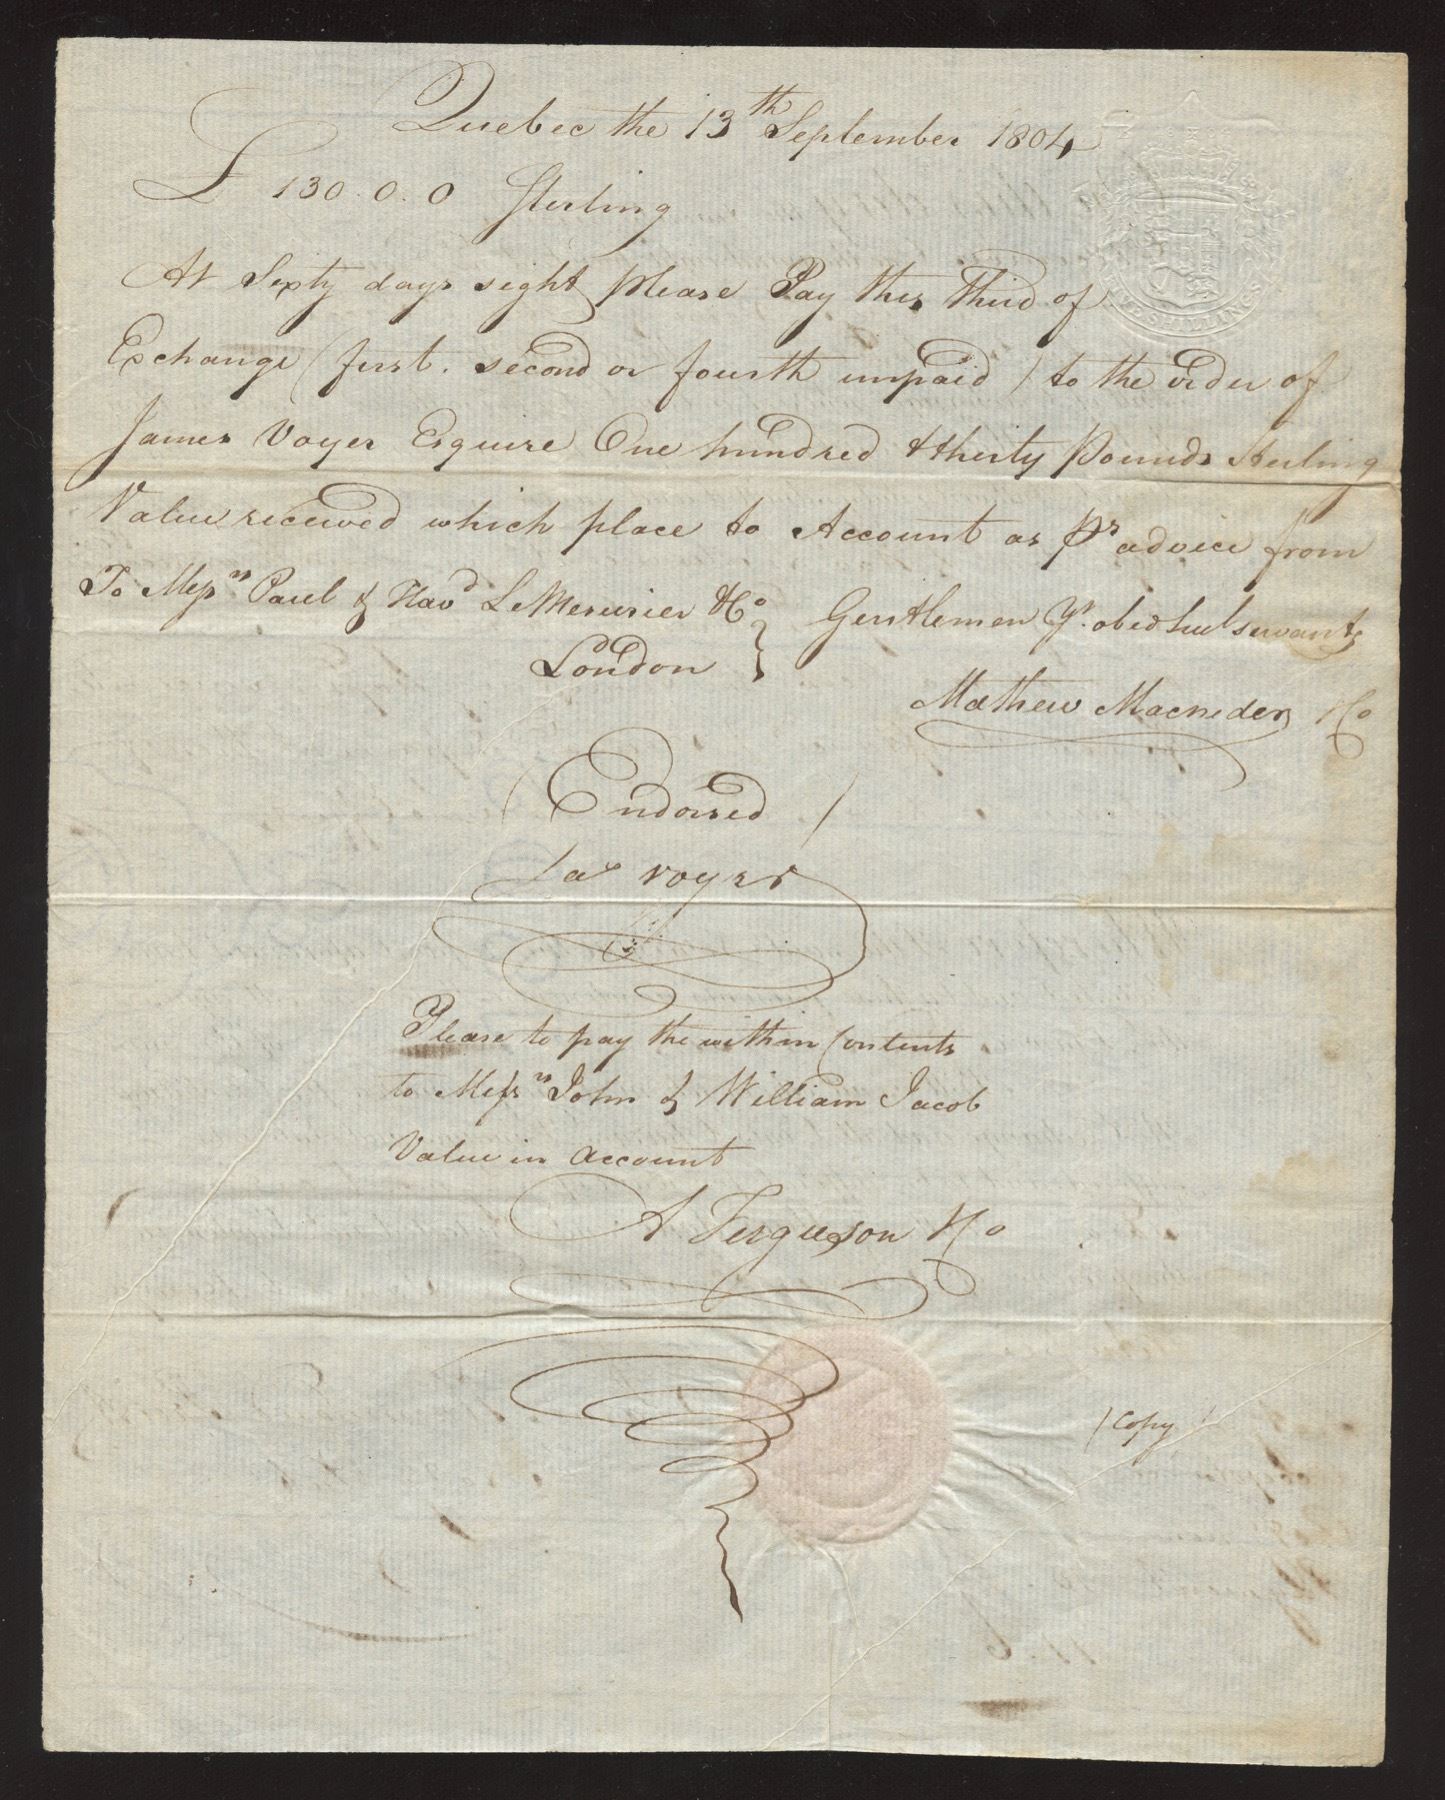 Quebec the 13th September 1804
£ 130.0.0 Sterling
At Sixty days sight please Pay this Third of
Exchange (first. second or fourth unpaid) to the order of
James Voyer Esquire One hundred & thirty Pounds Sterling
Value received which place to Account as pr advice from
To Messrs Paul & Havd LeMesurier & Co } Gentlemen Yr. obed hul servants
London
Mathew Macnider & Co
(Endorsed)
Jas voyer
Please to pay the within Contents
to Messrs John & William Jacob
Value in account
A Ferguson & Co
(Copy)
SHILLINGS